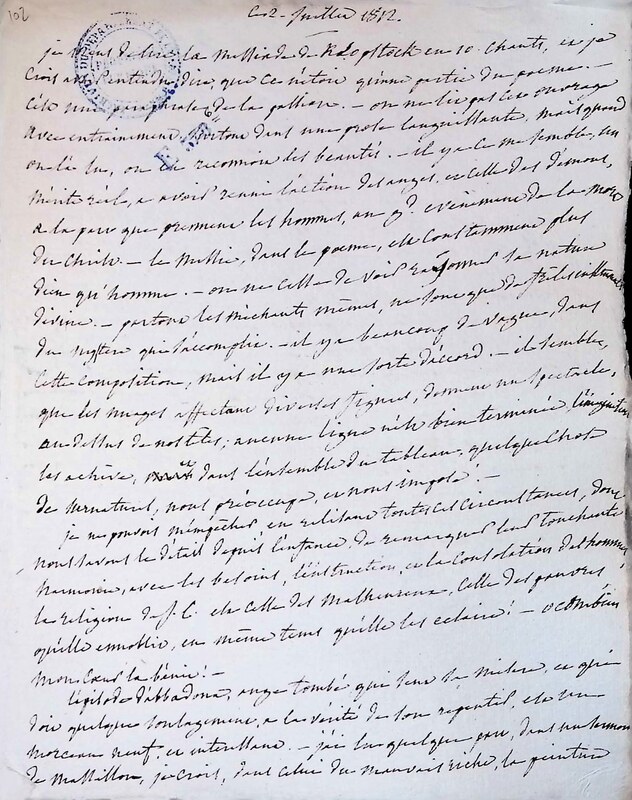 102
Ce 2. Juillet 1812.
je viens de lire la Messiade de Klopstock en 10. chants, et je
crois avoir entendu dire, que ce n'étoit qu'une partie du poeme. -
C'est une paraphrase de la passion. - on ne lit pas cet ouvrage
avec entrainement, surtout dans une prose languissante, mais quand
on l'a lu, on en reconnoit des beautés. - il y a ce me semble, un
mérite réel, a avoir reuni l'action des anges, et celle des démons,
a la part que prennent les hommes, au gd. evénement de la mort
du Christ. - le Messie, dans le poeme, est constamment plus
dieu qu'homme. - on ne cesse de voir sa nature
divine. - partout les méchants mêmes, ne sont que de
du mystere qui s'accomplit. - il y a beaucoup de vague, dans
cette composition, mais il y a une sorte d'accord. - il semble,
que les nuages affectant diverses figures, donnent un spectacle,
au dessus de nos têtes; aucune ligne n'est bien terminée l'imagination
les achève, dans l'ensemble du tableau, quelque chose
de surnaturel, nous préoccupe, et nous impose! -
je ne pouvois m'empêcher en relisant toutes ces circonstances, dont
nous savons le détail depuis l'enfance, de remarquer leur touchante
harmonie, avec les besoins, l'instruction, et la consolation des hommes,
la religion de J. C. est celle des malheureux, celle des pauvres
qu'elle ennoblit, en même tems qu'elle les eclaire! - o combien
mon coeur la bénit! -
l'épisode d'abbadona, ange tombé qui sent sa misere, et qui
doit quelque soulagement, a la vérité de son repentir, est un
morceau neuf, et interessant. - j'ai lu quelque part, dans un sermon
de Massillon, je crois, dans celui du mauvais riche, la peinture